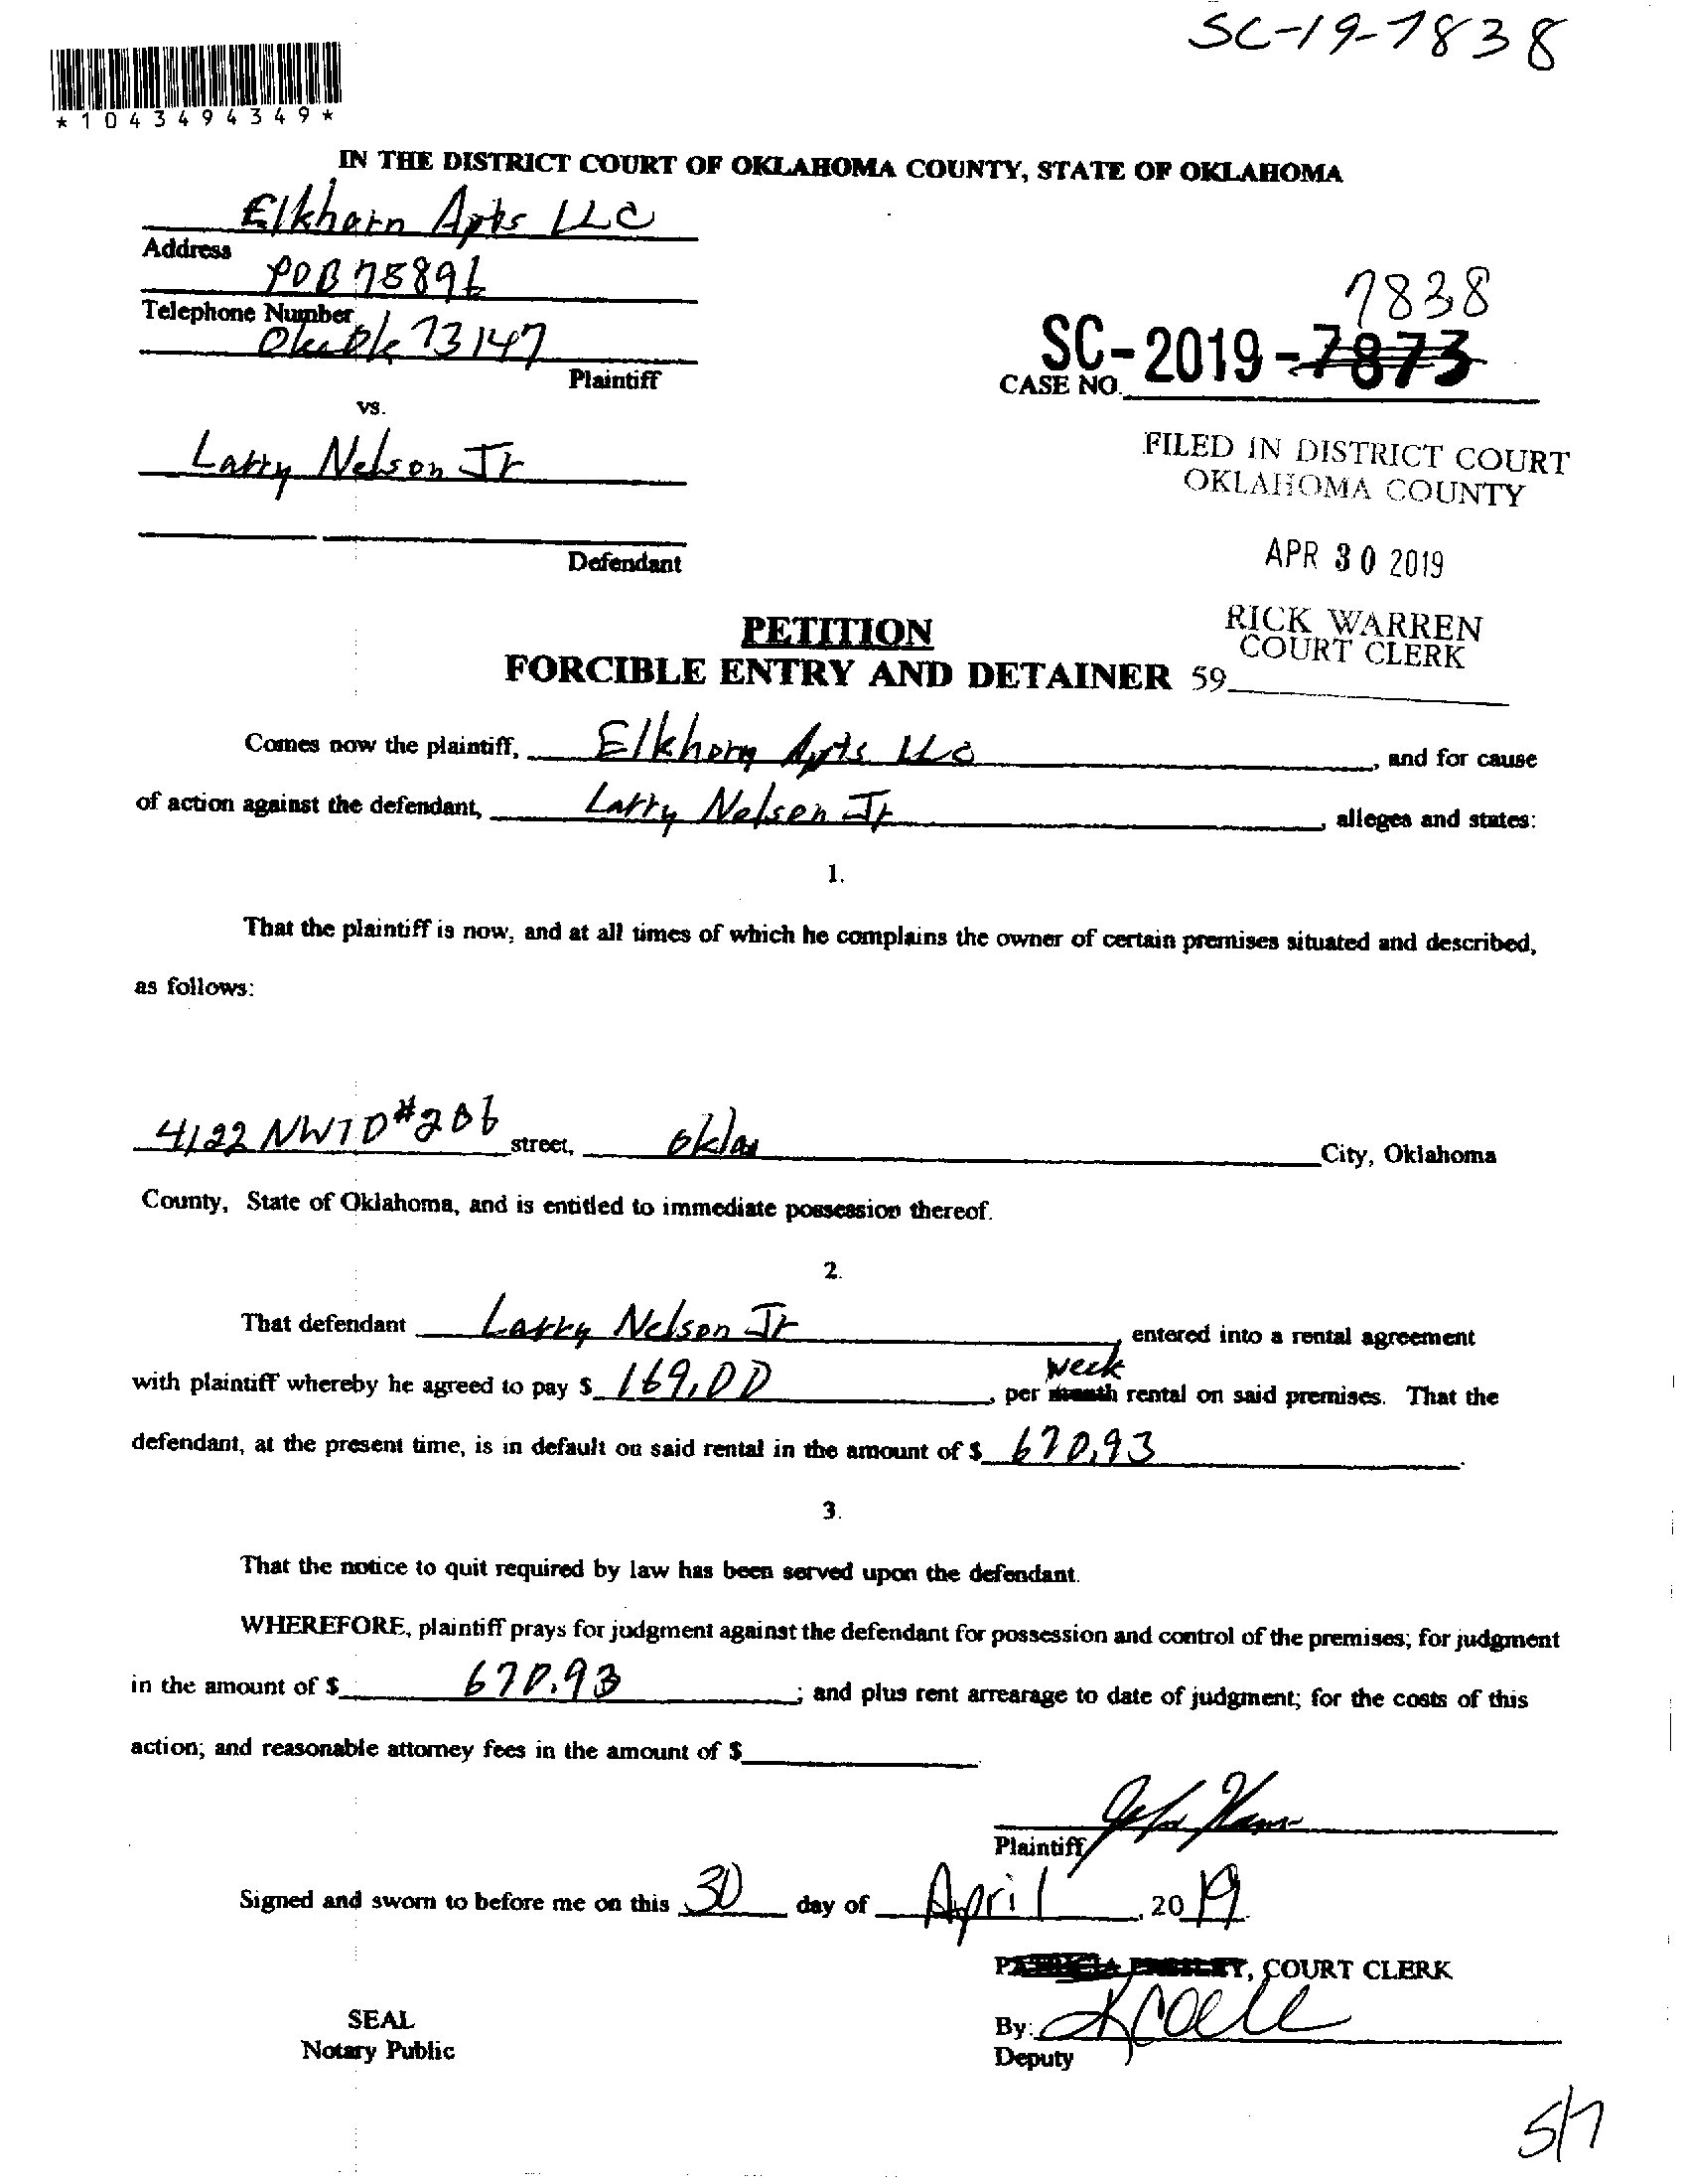 SC-19-7838
*1043494349*
IN THE DISTRICT COURT OF OKLAHOMA COUNTY, STATE OF OKLAHOMA
Elkhorn Apts LLC
Address
POB 75896
Telephone Number
Okc Ok 73147
Plaintiff
7838
SC-2019-7873
CASE NO.
vs.
Larry Nelson Jr
Defendant
FILED IN DISTRICT COURT
OKLAHOMA COUNTY
APR 30 2019
RICK WARREN
COURT CLERK
59
PETITION
FORCIBLE ENTRY AND DETAINER
Comes now the plaintiff, Elkhorn Apts LLC, and for cause
of action against the defendant, Larry Nelson Jr, alleges and states:
1.
That the plaintiff is now, and at all times of which he complains the owner of certain premises situated and described,
as follows:
4122 NW10 #206 street, Okla City, Oklahoma
County, State of Oklahoma, and is entitled to immediate possession thereof.
2.
That defendant Larry Nelson Jr, entered into a rental agreement
week
with plaintiff whereby he agreed to pay $ 169.00, per month rental on said premises. That the
defendant, at the present time, is in default on said rental in the amount of $ 670.93.
3.
That the notice to quit required by law has been served upon the defendant.
WHEREFORE, plaintiff prays for judgment against the defendant for possession and control of the premises; for judgment
in the amount of $ 670.93; and plus rent arrearage to date of judgment; for the costs of this
action; and reasonable attorney fees in the amount of $
Plaintiff
Signed and sworn to before me on this 30 day of April, 2019
PATRICIA PRESLEY, COURT CLERK
SEAL
Notary Public
By:
Deputy
5/7